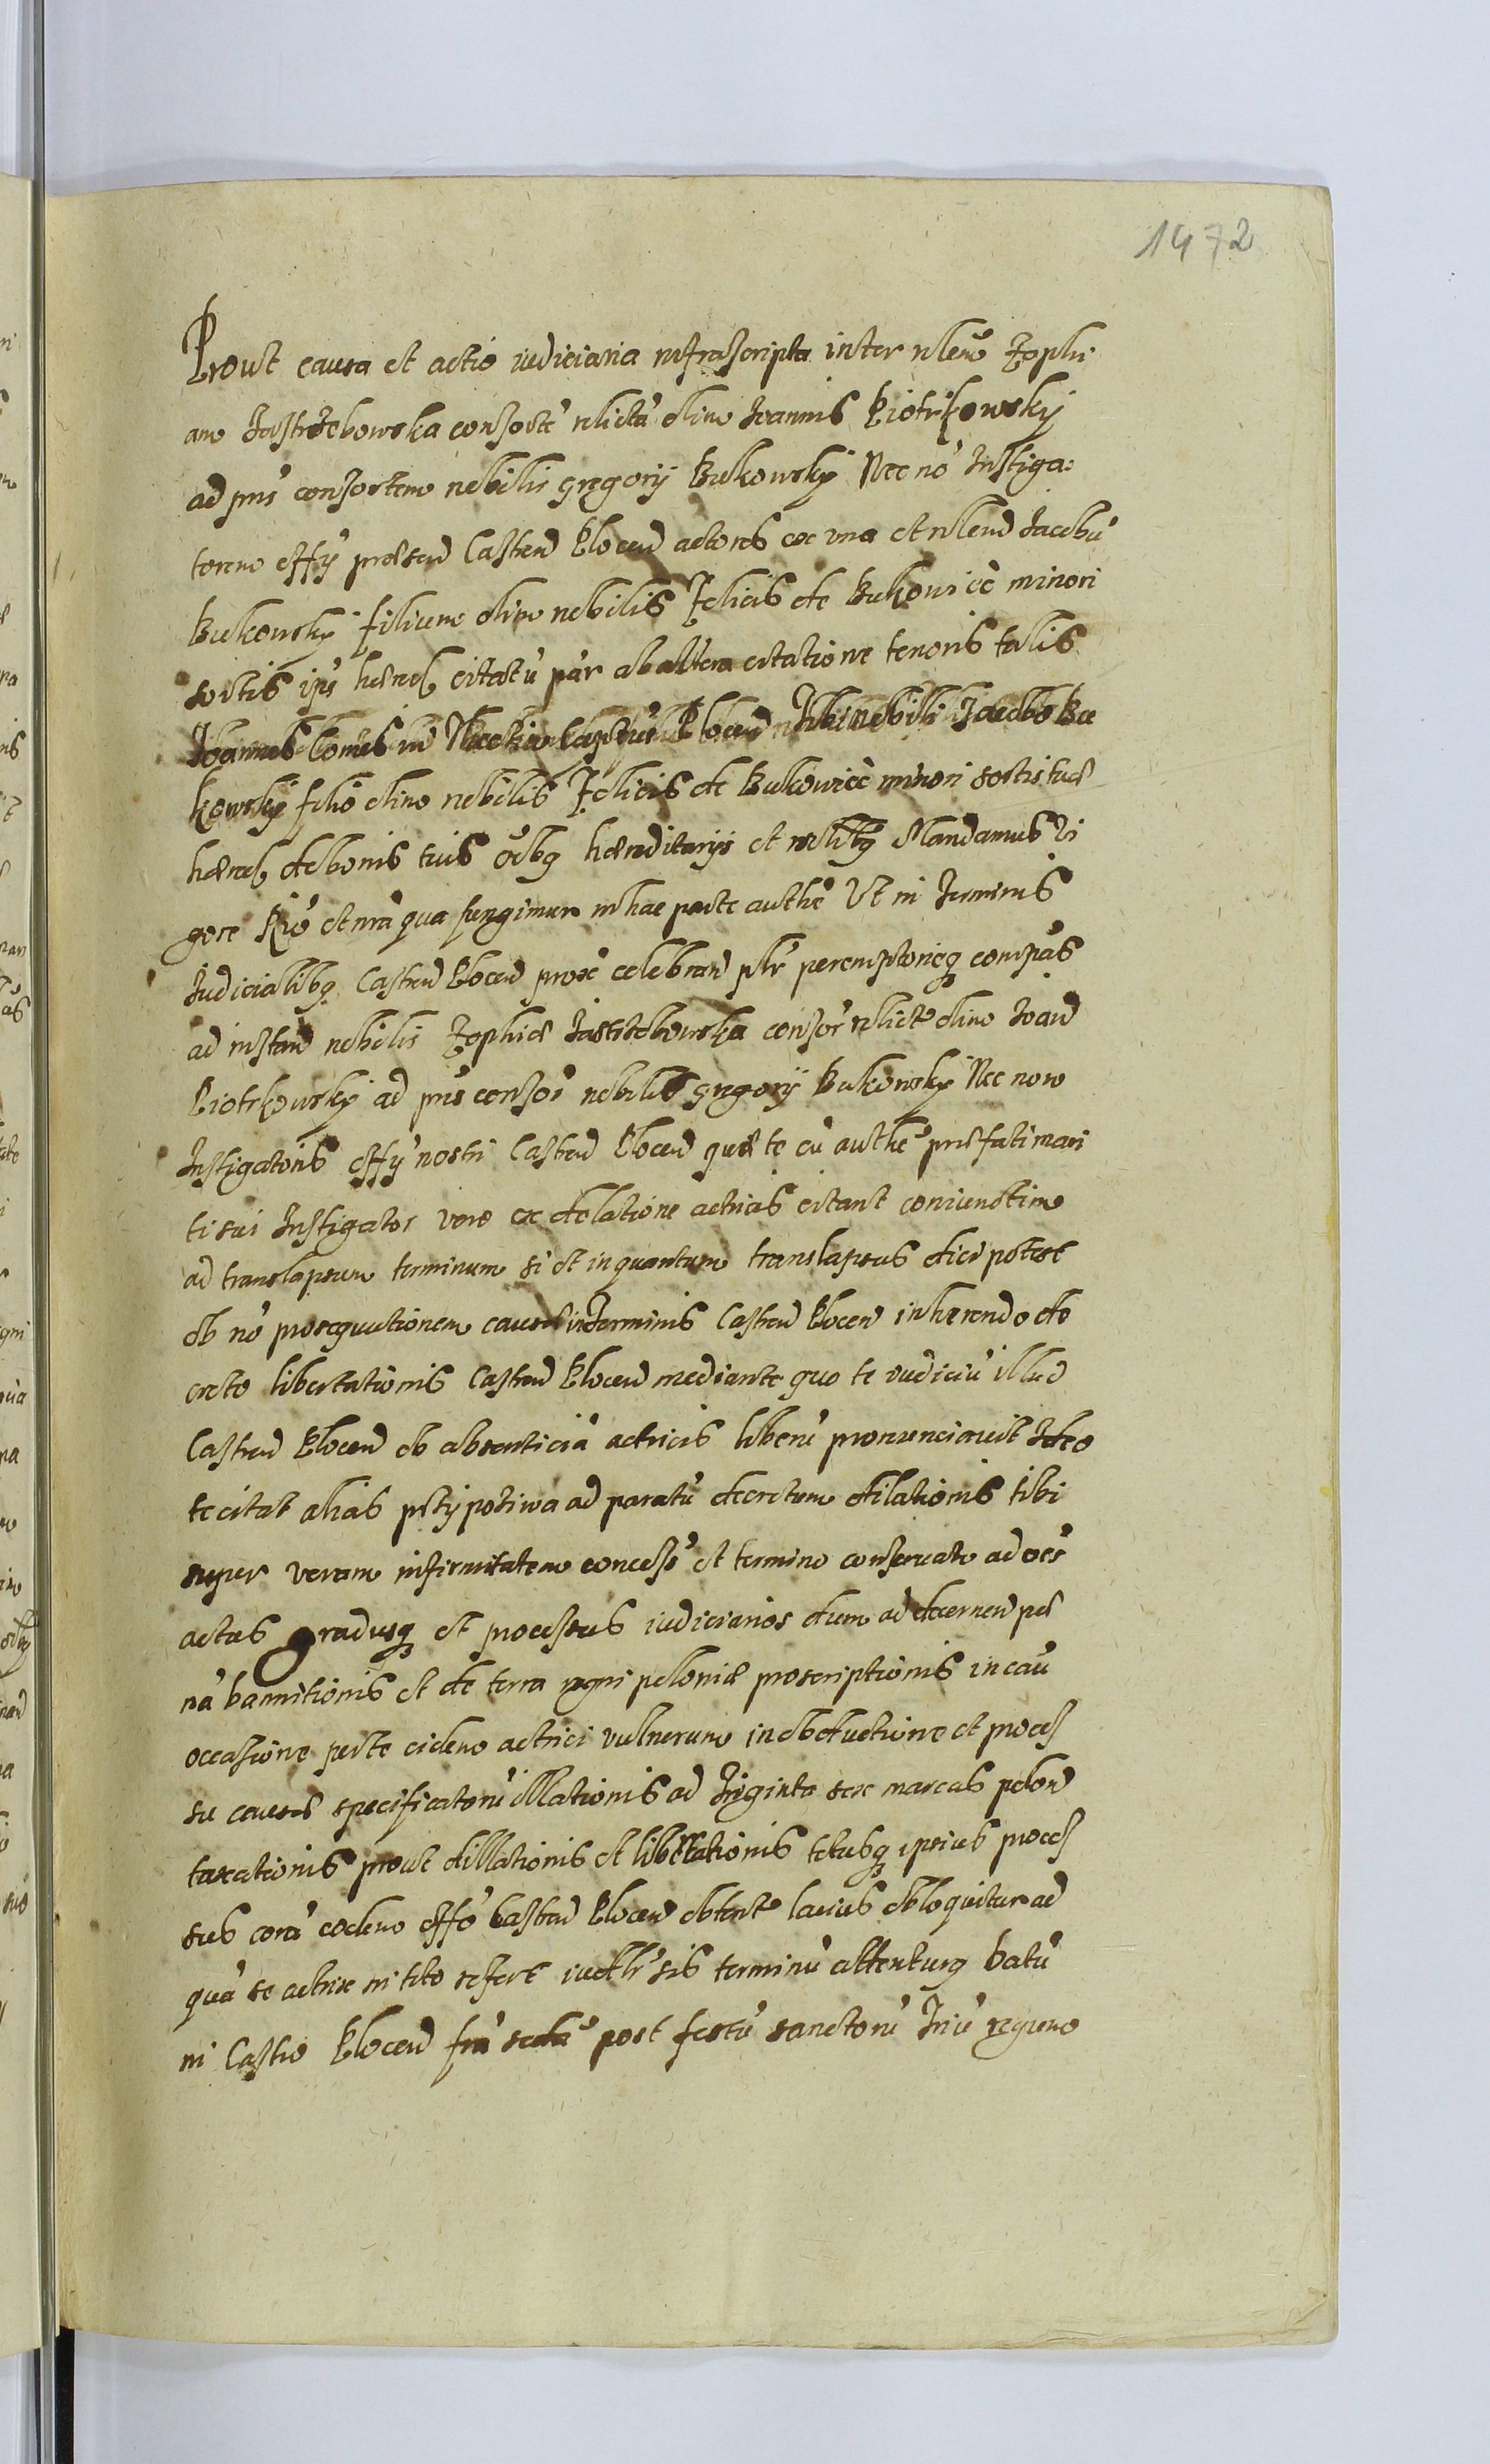 1472
Prout causa et actio iudiciaria infrascripta inter nlem̃ Zophi
am Jastrzebowska consortẽ relictã olim Joannis Piotrkowsky
ad pñs consortem nobilis gregorij Bukowsky Nec nõ Instiga:
torem offÿ præsen Castren Plocen actores ex una et nlem Jacobũ
Bukowsky filium olim nobilis Felicis de Bukowicẽ minori
sortis ips hæred citatũ par ab altera citatione tenoris talis
Joannes Comes in Capit Plocen Tibi nobili Jacobo Bu
kowsky filio olim nobilis Felicis de Bukowicẽ minori sortis tuæ
hæred de bonis tuis õibq hæreditarijs et mobilibq Mandamus Vi
gore Riẽ et nrã qua fungimur in hac parte authẽ Ut in Terminis
Judicialibq Castren Plocen prox celebran plr peremptorieq compãs
ad instan nobilis Zophiæ Jastrzebowska consor relictæ olim Joan
Piotrkowsky ad pñs consor nobilis gregorij Bukowsky Nec non
Instigatoris offÿ nostri Castren Plocen quæ te cũ authẽ præfati mari
ti sui Instigator vero ex delatione actricis citant coniunctim
ad translapsum terminum si et inquantum translapsus dici potest
ob nõ prosequutionem causæ in Terminis Castren Plocen inhærendo de
creto libertationis Castren Plocen mediante quo te iudiciũ illud
Castren Plocen ob absenticiã actricis liberũ pronunciavit Ideo
te citat alias pstyposiwa ad paratũ decretum dilationis tibi
super veram infirmitatem concessẽ et termino conseruato ad oẽs
actus gradusq et processus iudiciarios dum ad decernen pæ
nã bannitionis et de terra regni poloniæ proscriptionis in caũ
occasione parte eidem actrici vulnerum in obductione et proces
su causæ specificatorũ illationis ad Triginta sex marcas polon
taxationis prout dillationis et libertationis totusq ipsius proces
sus corã eodem offõ Castren Plocen obtento latius obloquitur ad
quã se actrix in toto refert iudlr sis terminũ attenturq batũ
in Castro Plocen frã sẽdã post festũ sanctorũ Triũ regum